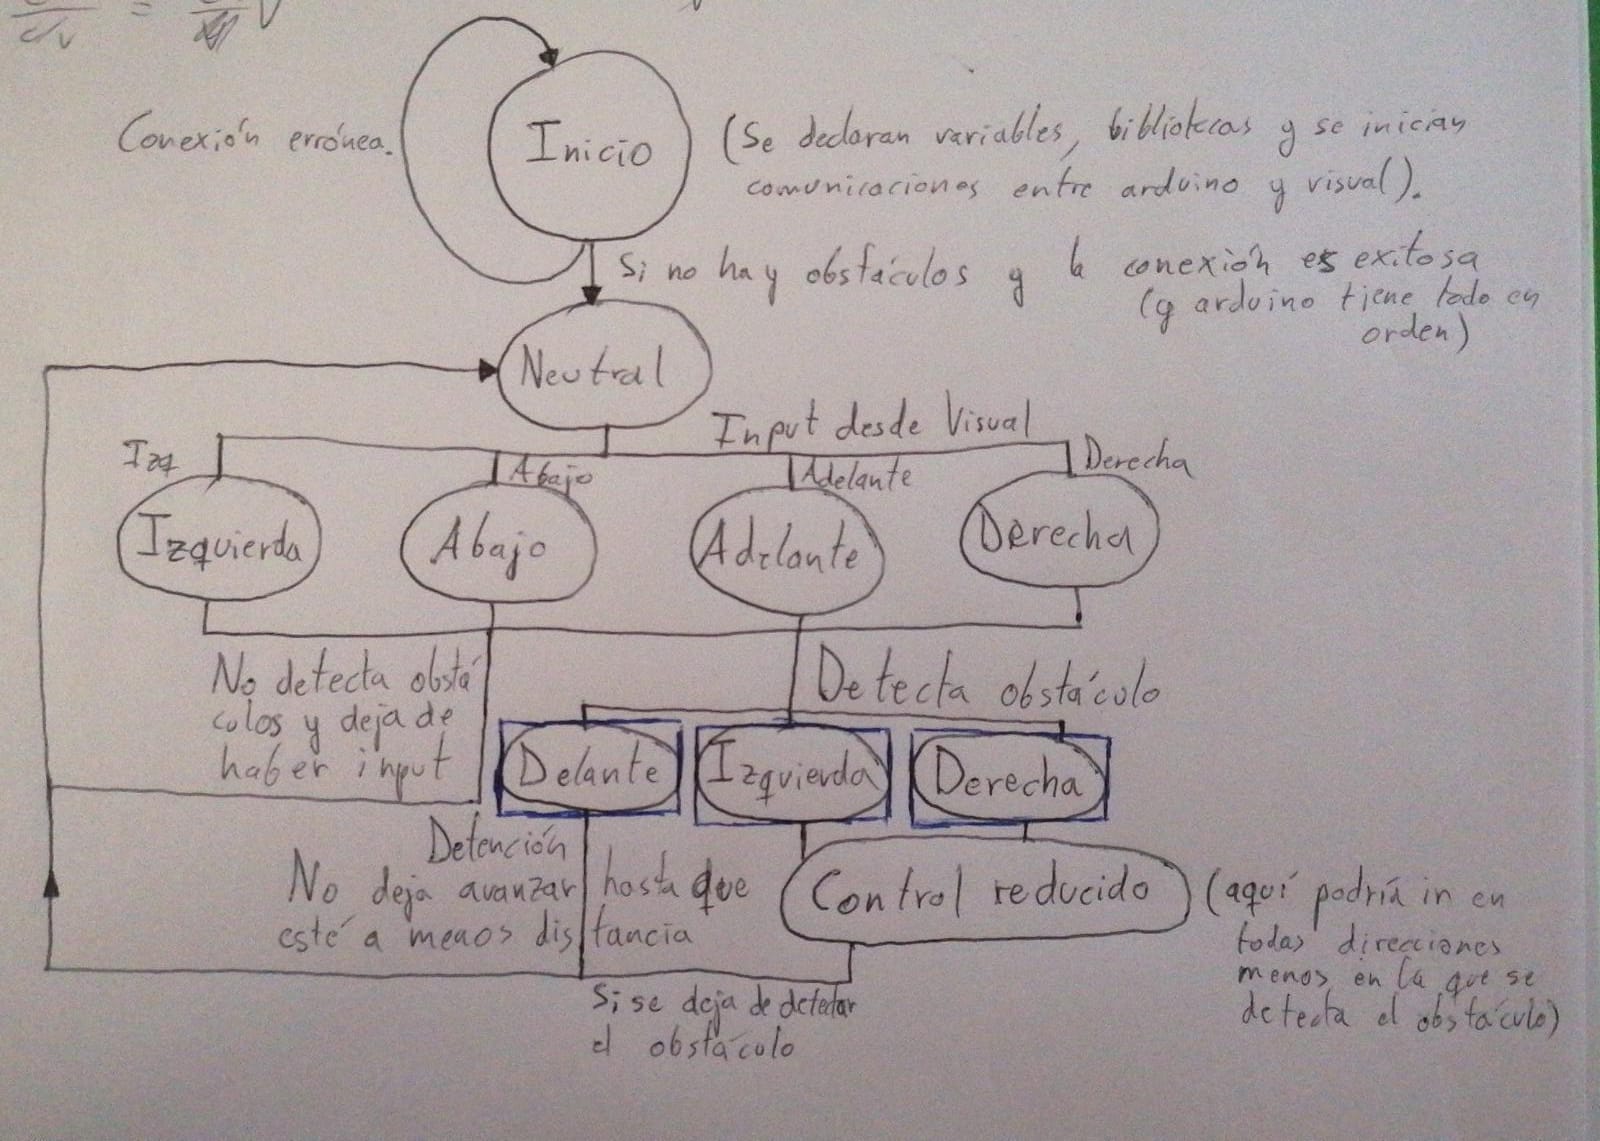 Inicio
Conexión errónea.
(Se declaran variables, bibliotecas y se inician
comunicaciones entre arduino y visual).
Si no hay obstáculos y la conexión es exitosa
(y arduino tiene todo en
orden)
Neutral
Input desde Visual
Izq
Abajo
Adelante
Derecha
Izquierda
Abajo
Adelante
Derecha
No detecta obstá
culos y deja de
haber input
Detecta obstáculo
Delante
Izquierda
Derecha
Detención
No deja avanzar hasta que
esté a menos distancia
Control reducido
(aquí podría ir en
todas direcciones
menos en la que se
detecta el obstáculo)
Si se deja de detectar
el obstáculo